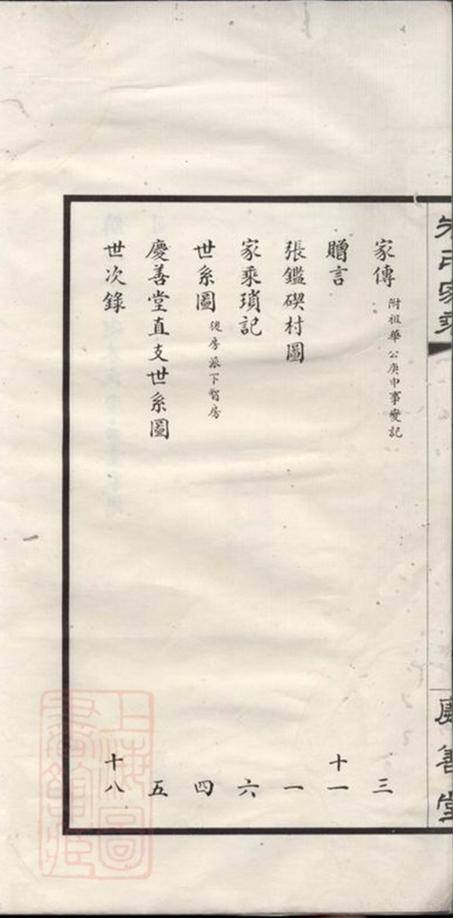 家傳 附祖華公庚申事變記 三
贈言 十一
張鑑碶村圖 一
家乘瑣記 六
世系圖 後房派下智房 四
慶善堂直支世系圖 五
世次錄 十八
氏家乘
慶善堂
上海圖書館藏